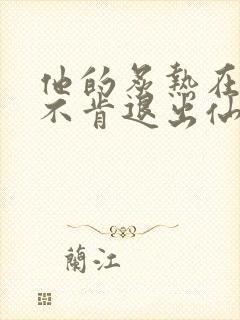 他的炙熱在
不肯退出仙
蘭江